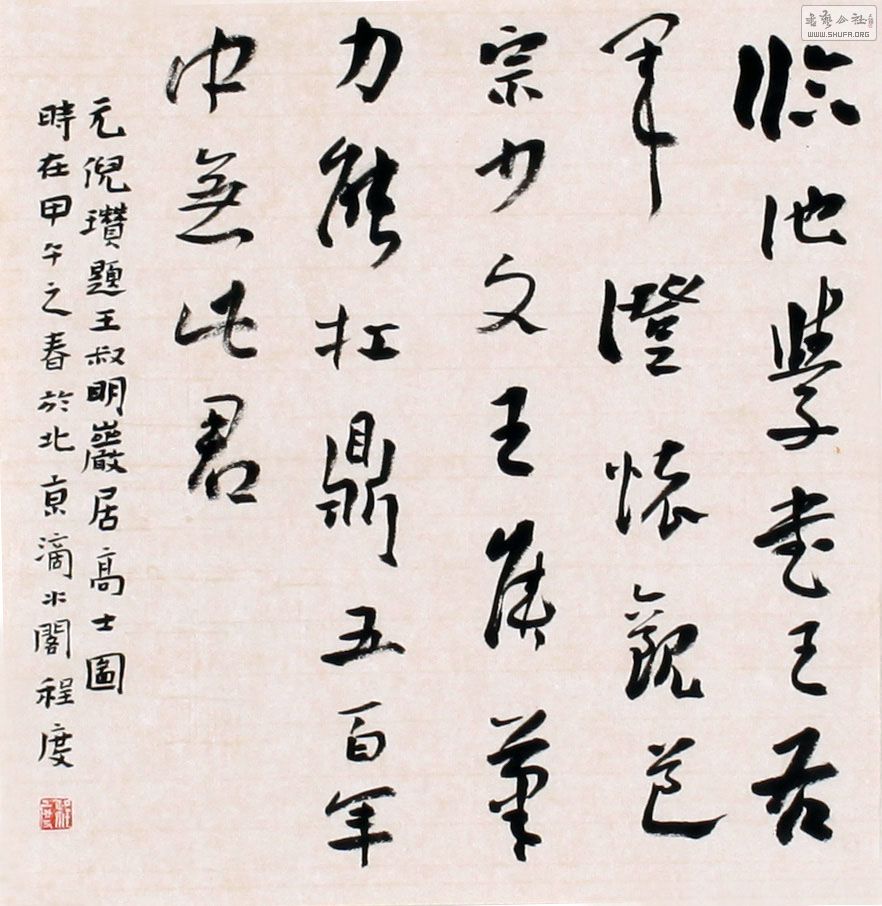 臨池學書王右
軍澄懷觀道
宗少文王侯筆
力能扛鼎五百年
中無此君
元倪瓚題王叔明巖居高士圖
時在甲午之春於北京滴水閣程度
書藝公社
WWW.SHUFA.ORG